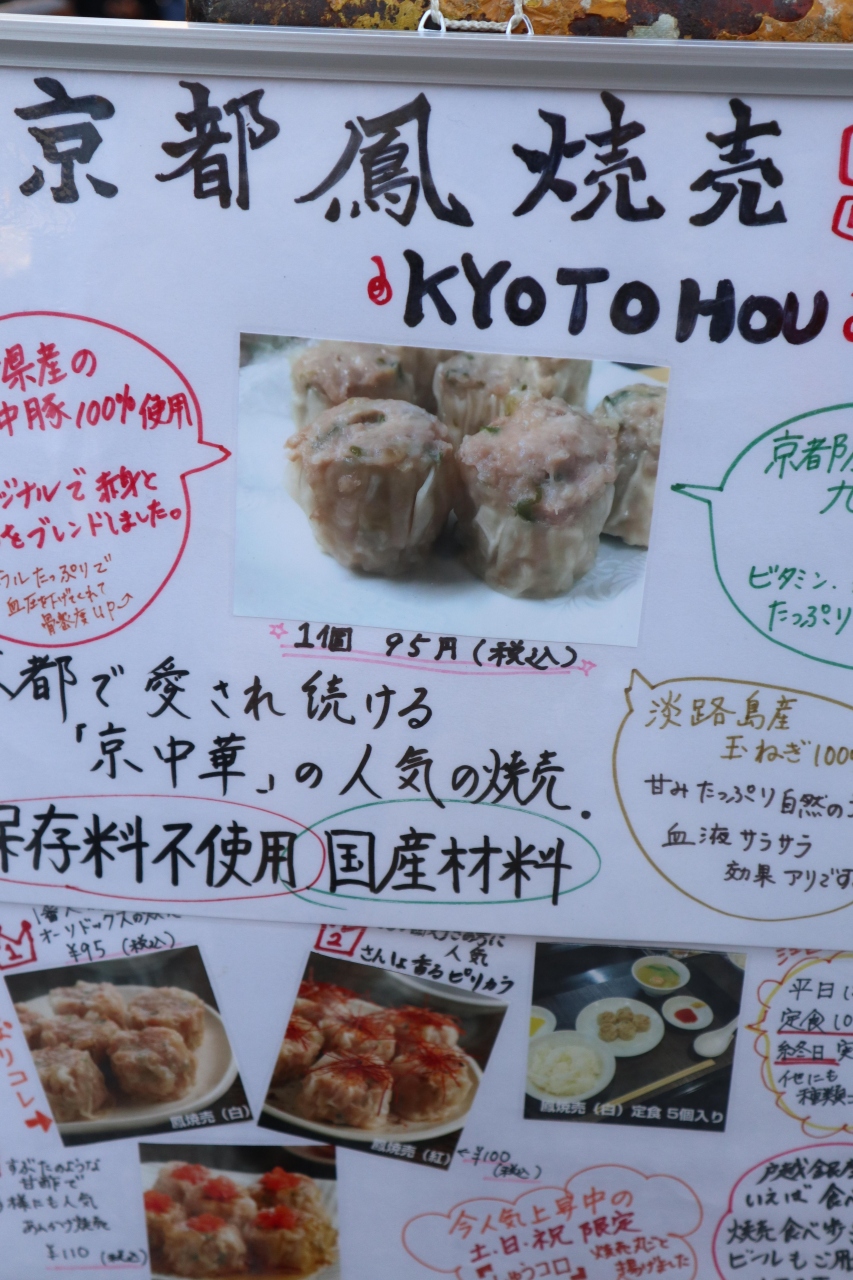 京都鳳焼売
KYOTO HOU
県産の
中豚100%使用
ジナルで赤身と
をブレンドしました。
たっぷりで
血圧を下げてくれて
骨密度UP
京都
九
ビタミン、
たっぷり
1個 95円(税込)
都で愛され続ける
「京中華」の人気の焼売。
保存料不使用
国産材料
淡路島産
玉ねぎ100%
甘みたっぷり自然の
血液サラサラ
効果アリです
1
オーソドックスの
¥95(税込)
コレ
鳳焼売(白)
2
人気
さんしょ香るピリカラ
鳳焼売(紅)
¥100
(税込)
鳳焼売(白)定食5個入り
平日
定食10
終日
他にも
種類
すぶたのような
甘酢で
様にも人気
あんかけ焼売
¥110(税込)
今人気上昇中の
土・日・祝 限定
焼売丸ごと
揚げました
しゅうコロ
戸越銀座
いえば 食べ
焼売食べ歩き
ビールもご用